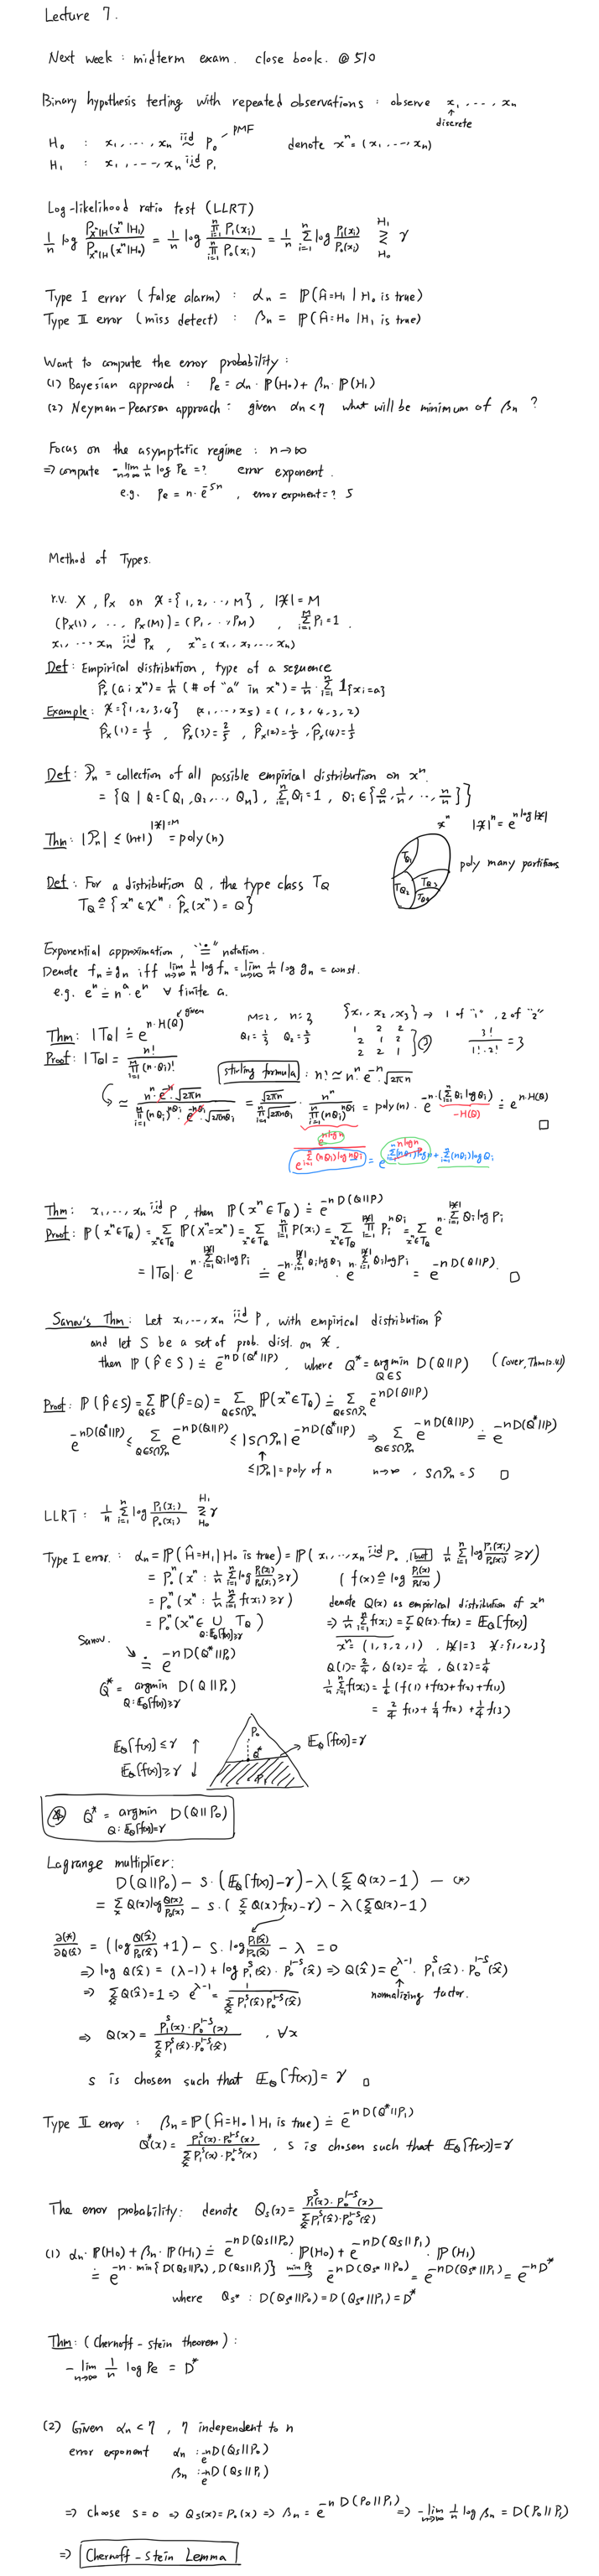 Lecture 7.
Next week : midterm exam. close book. @ 510
Binary hypothesis testing with repeated observations : observe x₁, ..., xₙ
↑
discrete
H₀ : x₁, ..., xₙ iid~ P₀ – PMF denote xⁿ = (x₁, ..., xₙ)
H₁ : x₁, ..., xₙ iid~ P₁
Log-likelihood ratio test (LLRT)
1/n log P_{xⁿ|H}(xⁿ|H₁) / P_{xⁿ|H}(xⁿ|H₀) = 1/n log ∏_{i=1}^n P₁(xᵢ) / ∏_{i=1}^n P₀(xᵢ) = 1/n Σ_{i=1}^n log P₁(xᵢ)/P₀(xᵢ) ≷^{H₁}_{H₀} γ
Type I error (false alarm) : αₙ = ℙ(Ĥ=H₁ | H₀ is true)
Type II error (miss detect) : βₙ = ℙ(Ĥ=H₀ | H₁ is true)
Want to compute the error probability :
(1) Bayesian approach : Pe = αₙ · ℙ(H₀) + βₙ · ℙ(H₁)
(2) Neyman-Pearson approach : given αₙ < η what will be minimum of βₙ ?
Focus on the asymptotic regime : n→∞
⇒ compute -lim_{n→∞} 1/n log Pe = ? error exponent.
e.g. Pe = n · e^{-5n}, error exponent = ? 5
Method of Types.
r.v. X, Pₓ on 𝒳 = {1, 2, ..., M}, |𝒳| = M
(Pₓ(1), ..., Pₓ(M)) = (P₁, ..., P_M), Σ_{i=1}^M Pᵢ = 1.
x₁, ... xₙ iid~ Pₓ, xⁿ = (x₁, x₂, ..., xₙ)
Def : Empirical distribution, type of a sequence
P̂ₓ(a ; xⁿ) = 1/n (# of "a" in xⁿ) = 1/n · Σ_{i=1}^n 1{xᵢ=a}
Example : 𝒳 = {1, 2, 3, 4} (x₁, ..., x₅) = (1, 3, 4, 3, 2)
P̂ₓ(1) = 1/5, P̂ₓ(3) = 2/5, P̂ₓ(2) = 1/5, P̂ₓ(4) = 1/5
Def : 𝒫ₙ = collection of all possible empirical distribution on xⁿ.
= {Q | Q = [Q₁, Q₂, ... Qₙ], Σ_{i=1}^n Qᵢ = 1, Qᵢ ∈ {0/n, 1/n, ..., n/n}}
xⁿ |𝒳|ⁿ = e^{n log|𝒳|}
Thm : |𝒫ₙ| ≤ (n+1)^{|𝒳|=M} = poly(n)
T_{Q₁} T_{Q₂} T_{Q₃} T_{Q₄} poly many partitions
Def : For a distribution Q, the type class T_Q
T_Q ≜ {xⁿ ∈ 𝒳ⁿ : P̂ₓ(xⁿ) = Q}
Exponential approximation, "≐" notation.
Denote fₙ ≐ gₙ iff lim_{n→∞} 1/n log fₙ = lim_{n→∞} 1/n log gₙ = const.
e.g. eⁿ ≐ nᵃ · eⁿ ∀ finite a.
Thm : |T_Q| ≐ e^{n·H(Q)} given M=2, n=3 {x₁, x₂, x₃} → 1 of "1", 2 of "2"
Q₁ = 1/3 Q₂ = 2/3 1 2 2
2 1 2
2 2 1 ③ 3!/(1!·2!) = 3
Proof : |T_Q| = n! / ∏_{i=1}^M (n·Qᵢ)! stirling formula : n! ≃ nⁿ · e^{-n} √(2πn)
≃ nⁿ · e^{-n} · √(2πn) / ∏_{i=1}^M (nQᵢ)^{nQᵢ} · e^{-nQᵢ} · √(2πnQᵢ) = √(2πn) / ∏_{i=1}^M √(2πnQᵢ) · nⁿ / ∏_{i=1}^M (nQᵢ)^{nQᵢ} = poly(n) · e^{-n·(Σ_{i=1}^M Qᵢ log Qᵢ)} ≐ e^{n·H(Q)}
-H(Q)
□
e^{n log n} / e^{Σ_{i=1}^M (nQᵢ) log nQᵢ} = e^{Σ_{i=1}^M (nQᵢ) log n + Σ_{i=1}^M (nQᵢ) log Qᵢ} n log n
Thm : x₁, ... xₙ iid~ P, then ℙ(xⁿ ∈ T_Q) ≐ e^{-n D(Q||P)}
Proof : ℙ(xⁿ∈T_Q) = Σ_{xⁿ∈T_Q} ℙ(Xⁿ=xⁿ) = Σ_{xⁿ∈T_Q} ∏_{i=1}^n P(xᵢ) = Σ_{xⁿ∈T_Q} ∏_{i=1}^{|𝒳|} Pᵢ^{nQᵢ} = Σ_{xⁿ∈T_Q} e^{n·Σ_{i=1}^{|𝒳|} Qᵢ log Pᵢ}
= |T_Q| · e^{n·Σ_{i=1}^{|𝒳|} Qᵢ log Pᵢ} ≐ e^{-n·Σ_{i=1}^{|𝒳|} Qᵢ log Qᵢ} · e^{n·Σ_{i=1}^{|𝒳|} Qᵢ log Pᵢ} = e^{-n D(Q||P)}. □
Sanov's Thm : Let x₁, ..., xₙ iid~ P, with empirical distribution P̂
and let S be a set of prob. dist. on 𝒳.
then ℙ(P̂∈S) ≐ e^{-n D(Q*||P)}, where Q* = argmin_{Q∈S} D(Q||P) (Cover, Thm 12.4)
Proof : ℙ(P̂∈S) = Σ_{Q∈S} ℙ(P̂=Q) = Σ_{Q∈S∩𝒫ₙ} ℙ(xⁿ∈T_Q) ≐ Σ_{Q∈S∩𝒫ₙ} e^{-nD(Q||P)}
e^{-nD(Q*||P)} ≤ Σ_{Q∈S∩𝒫ₙ} e^{-nD(Q||P)} ≤ |S∩𝒫ₙ| e^{-nD(Q*||P)} ⇒ Σ_{Q∈S∩𝒫ₙ} e^{-nD(Q||P)} ≐ e^{-nD(Q*||P)}
↑
≤|𝒫ₙ| = poly of n n→∞, S∩𝒫ₙ = S □
LLRT : 1/n Σ_{i=1}^n log P₁(xᵢ)/P₀(xᵢ) ≷^{H₁}_{H₀} γ
Type I error : αₙ = ℙ(Ĥ=H₁ | H₀ is true) = ℙ(x₁, ..., xₙ iid~ P₀, but 1/n Σ_{i=1}^n log P₁(xᵢ)/P₀(xᵢ) ≥ γ)
= P₀ⁿ(xⁿ : 1/n Σ_{i=1}^n log P₁(xᵢ)/P₀(xᵢ) ≥ γ) (f(x) ≜ log P₁(x)/P₀(x))
= P₀ⁿ(xⁿ : 1/n Σ_{i=1}^n f(xᵢ) ≥ γ) denote Q(x) as empirical distribution of xⁿ
= P₀ⁿ(xⁿ ∈ ∪_{Q:𝔼_Q[f(x)]≥γ} T_Q) ⇒ 1/n Σ_{i=1}^n f(xᵢ) = Σₓ Q(x)·f(x) = 𝔼_Q[f(x)]
Sanov. ≐ e^{-n D(Q*||P₀)} xⁿ = (1, 3, 2, 1), |𝒳|=3 𝒳={1,2,3}
Q(1) = 2/4, Q(2) = 1/4, Q(3) = 1/4
Q* = argmin_{Q:𝔼_Q[f(x)]≥γ} D(Q||P₀) 1/n Σ_{i=1}^n f(xᵢ) = 1/4 (f(1)+f(3)+f(2)+f(1))
= 2/4 f(1) + 1/4 f(2) + 1/4 f(3)
𝔼_Q[f(x)] ≤ γ ↑ P₀ Q* P₁ 𝔼_Q[f(x)] = γ
𝔼_Q[f(x)] ≥ γ ↓
⊛ Q* = argmin_{Q:𝔼_Q[f(x)]=γ} D(Q||P₀)
Lagrange multiplier :
D(Q||P₀) - s·(𝔼_Q[f(x)]-γ) - λ(Σₓ Q(x)-1) — (*)
= Σₓ Q(x) log Q(x)/P₀(x) - s·(Σₓ Q(x) f(x)-γ) - λ(Σₓ Q(x)-1)
∂(*)/∂Q(x̂) = (log Q(x̂)/P₀(x̂) + 1) - s·log P₁(x̂)/P₀(x̂) - λ = 0
⇒ log Q(x̂) = (λ-1) + log P₁ˢ(x̂)·P₀^{1-s}(x̂) ⇒ Q(x̂) = e^{λ-1} · P₁ˢ(x̂) · P₀^{1-s}(x̂)
⇒ Σ_{x̂} Q(x̂) = 1 ⇒ e^{λ-1} = 1 / Σ_{x̂} P₁ˢ(x̂) P₀^{1-s}(x̂) normalizing factor.
⇒ Q(x) = P₁ˢ(x)·P₀^{1-s}(x) / Σ_{x̂} P₁ˢ(x̂)·P₀^{1-s}(x̂), ∀x
s is chosen such that 𝔼_Q[f(x)] = γ □
Type II error : βₙ = ℙ(Ĥ=H₀ | H₁ is true) ≐ e^{-n D(Q*||P₁)}
Q*(x) = P₁ˢ(x)·P₀^{1-s}(x) / Σₓ P₁ˢ(x)·P₀^{1-s}(x), s is chosen such that 𝔼_Q[f(x)] = γ
The error probability : denote Qₛ(x) = P₁ˢ(x)·P₀^{1-s}(x) / Σ_{x̂} P₁ˢ(x̂)·P₀^{1-s}(x̂)
(1) αₙ·ℙ(H₀) + βₙ·ℙ(H₁) ≐ e^{-nD(Qₛ||P₀)} · ℙ(H₀) + e^{-nD(Qₛ||P₁)} · ℙ(H₁)
≐ e^{-n·min{D(Qₛ||P₀), D(Qₛ||P₁)}} →^{min Pe} e^{-nD(Qₛ*||P₀)} = e^{-nD(Qₛ*||P₁)} = e^{-nD*}
where Qₛ* : D(Qₛ*||P₀) = D(Qₛ*||P₁) = D*
Thm : (Chernoff-Stein theorem) :
-lim_{n→∞} 1/n log Pe = D*
(2) Given αₙ < η, η independent to n
error exponent αₙ : e^{-nD(Qₛ||P₀)}
βₙ : e^{-nD(Qₛ||P₁)}
⇒ choose s=0 ⇒ Qₛ(x) = P₀(x) ⇒ βₙ = e^{-n D(P₀||P₁)} ⇒ -lim_{n→∞} 1/n log βₙ = D(P₀||P₁)
⇒ Chernoff-Stein Lemma